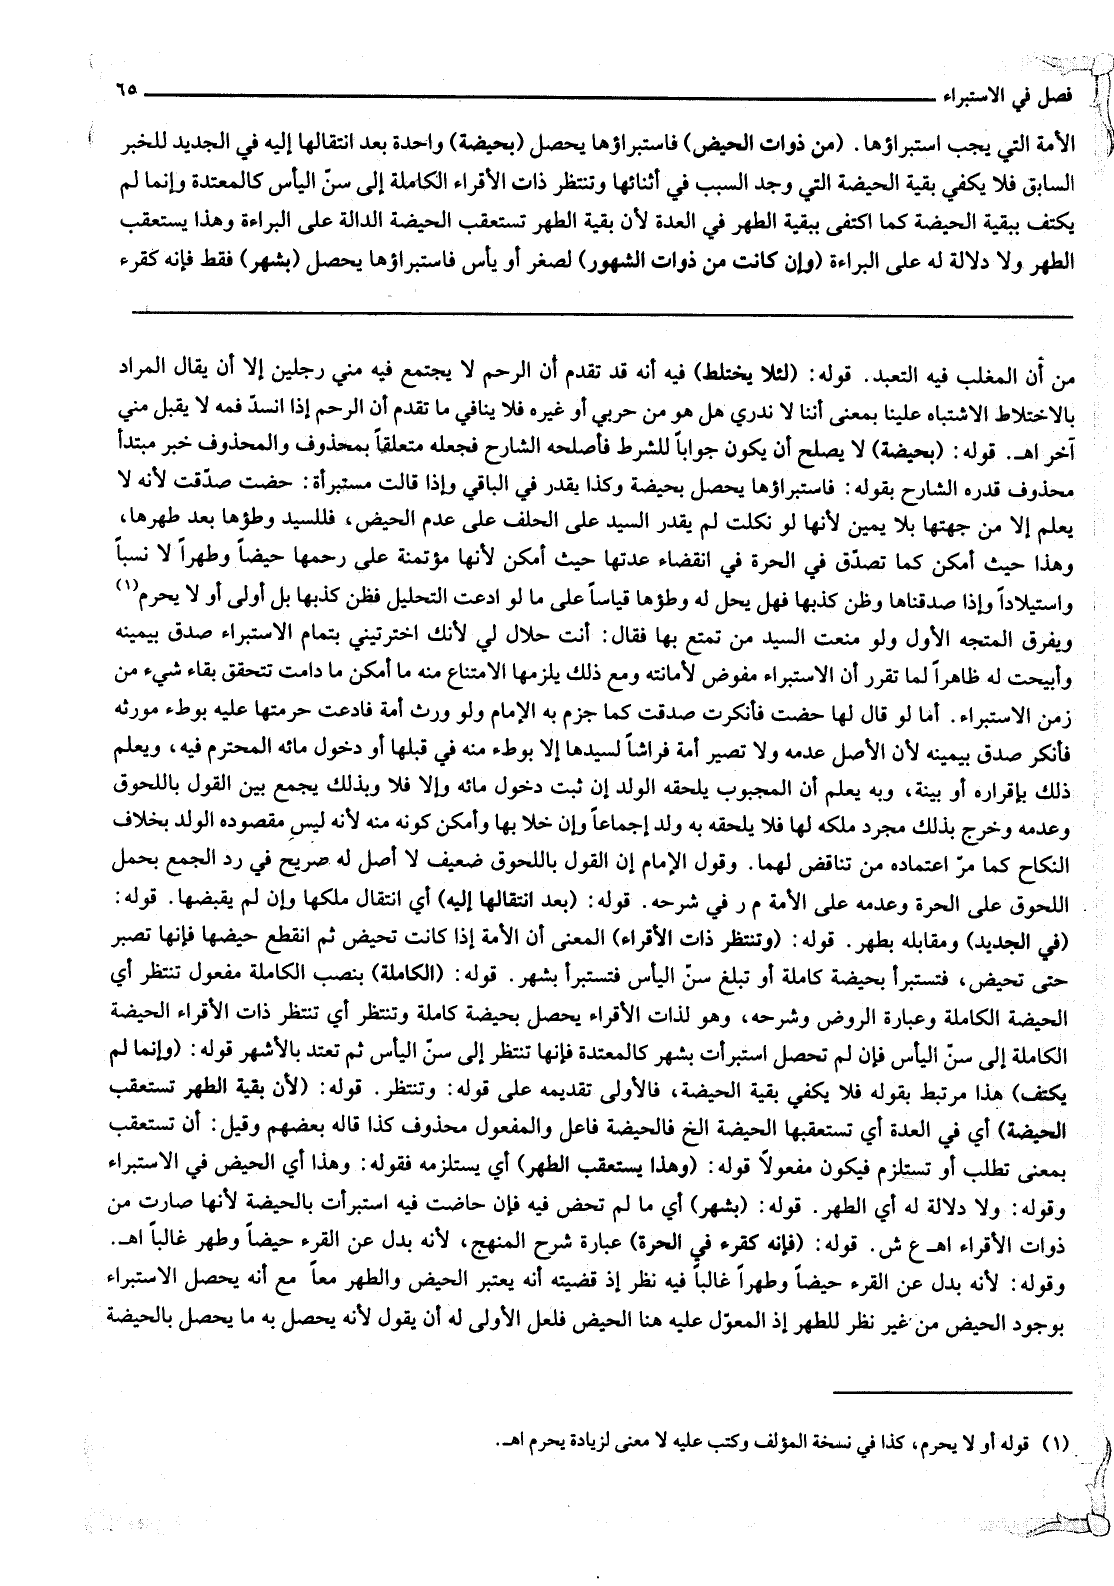 فصل في الاستبراء ٦٥
الأمة التي يجب استبراؤها. (من ذوات الحيض) فاستبراؤها يحصل (بحيضة) واحدة بعد انتقالها إليه في الجديد للخبر
السابق فلا يكفي بقية الحيضة التي وجد السبب في أثنائها وتنتظر ذات الأقراء الكاملة إلى سنّ اليأس كالمعتدة وإنما لم
يكتف ببقية الحيضة كما اكتفى ببقية الطهر في العدة لأن بقية الطهر تستعقب الحيضة الدالة على البراءة وهذا يستعقب
الطهر ولا دلالة له على البراءة (وإن كانت من ذوات الشهور) لصغر أو يأس فاستبراؤها يحصل (بشهر) فقط فإنه كقرء
من أن المغلب فيه التعبد. قوله: (لئلا يختلط) فيه أنه قد تقدم أن الرحم لا يجتمع فيه مني رجلين إلا أن يقال المراد
بالاختلاط الاشتباه علينا بمعنى أننا لا ندري هل هو من حربي أو غيره فلا ينافي ما تقدم أن الرحم إذا انسدّ فمه لا يقبل مني
آخر اهـ. قوله: (بحيضة) لا يصلح أن يكون جواباً للشرط فأصلحه الشارح فجعله متعلقاً بمحذوف والمحذوف خبر مبتدأ
محذوف قدره الشارح بقوله: فاستبراؤها يحصل بحيضة وكذا يقدر في الباقي وإذا قالت مستبرأة: حضت صدّقت لأنه لا
يعلم إلا من جهتها بلا يمين لأنها لو نكلت لم يقدر السيد على الحلف على عدم الحيض، فللسيد وطؤها بعد طهرها،
وهذا حيث أمكن كما تصدّق في الحرة في انقضاء عدتها حيث أمكن لأنها مؤتمنة على رحمها حيضاً وطهراً لا نسباً
واستيلاداً وإذا صدقناها وظن كذبها فهل يحل له وطؤها قياساً على ما لو ادعت التحليل فظن كذبها بل أولى أو لا يحرم(١)
ويفرق المتجه الأول ولو منعت السيد من تمتع بها فقال: أنت حلال لي لأنك اخترتيني بتمام الاستبراء صدق بيمينه
وأبيحت له ظاهراً لما تقرر أن الاستبراء مفوض لأمانته ومع ذلك يلزمها الامتناع منه ما أمكن ما دامت تتحقق بقاء شيء من
زمن الاستبراء. أما لو قال لها حضت فأنكرت صدقت كما جزم به الإمام ولو ورث أمة فادعت حرمتها عليه بوطء مورثه
فأنكر صدق بيمينه لأن الأصل عدمه ولا تصير أمة فراشاً لسيدها إلا بوطء منه في قبلها أو دخول مائه المحترم فيه، ويعلم
ذلك بإقراره أو بينة، وبه يعلم أن المجبوب يلحقه الولد إن ثبت دخول مائه وإلا فلا وبذلك يجمع بين القول باللحوق
وعدمه وخرج بذلك مجرد ملكه لها فلا يلحقه به ولد إجماعاً وإن خلا بها وأمكن كونه منه لأنه ليس مقصوده الولد بخلاف
النكاح كما مرّ اعتماده من تناقض لهما. وقول الإمام إن القول باللحوق ضعيف لا أصل له صريح في رد الجمع بحمل
اللحوق على الحرة وعدمه على الأمة م ر في شرحه. قوله: (بعد انتقالها إليه) أي انتقال ملكها وإن لم يقبضها. قوله:
(في الجديد) ومقابله بطهر. قوله: (وتنتظر ذات الأقراء) المعنى أن الأمة إذا كانت تحيض ثم انقطع حيضها فإنها تصبر
حتى تحيض، فتستبرأ بحيضة كاملة أو تبلغ سنّ اليأس فتستبرأ بشهر. قوله: (الكاملة) بنصب الكاملة مفعول تنتظر أي
الحيضة الكاملة وعبارة الروض وشرحه، وهو لذات الأقراء يحصل بحيضة كاملة وتنتظر أي تنتظر ذات الأقراء الحيضة
الكاملة إلى سنّ اليأس فإن لم تحصل استبرأت بشهر كالمعتدة فإنها تنتظر إلى سنّ اليأس ثم تعتد بالأشهر قوله: (وإنما لم
يكتف) هذا مرتبط بقوله فلا يكفي بقية الحيضة، فالأولى تقديمه على قوله: وتنتظر. قوله: (لأن بقية الطهر تستعقب
الحيضة) أي في العدة أي تستعقبها الحيضة الخ فالحيضة فاعل والمفعول محذوف كذا قاله بعضهم وقيل: أن تستعقب
بمعنى تطلب أو تستلزم فيكون مفعولاً قوله: (وهذا يستعقب الطهر) أي يستلزمه فقوله: وهذا أي الحيض في الاستبراء
وقوله: ولا دلالة له أي الطهر. قوله: (بشهر) أي ما لم تحض فيه فإن حاضت فيه استبرأت بالحيضة لأنها صارت من
ذوات الأقراء اهـ ع ش. قوله: (فإنه كقرء في الحرة) عبارة شرح المنهج، لأنه بدل عن القرء حيضاً وطهر غالباً اهـ.
وقوله: لأنه بدل عن القرء حيضاً وطهراً غالباً فيه نظر إذ قضيته أنه يعتبر الحيض والطهر معاً مع أنه يحصل الاستبراء
بوجود الحيض من غير نظر للطهر إذ المعوّل عليه هنا الحيض فلعل الأولى له أن يقول لأنه يحصل به ما يحصل بالحيضة
(١) قوله أو لا يحرم، كذا في نسخة المؤلف وكتب عليه لا معنى لزيادة يحرم اهـ.